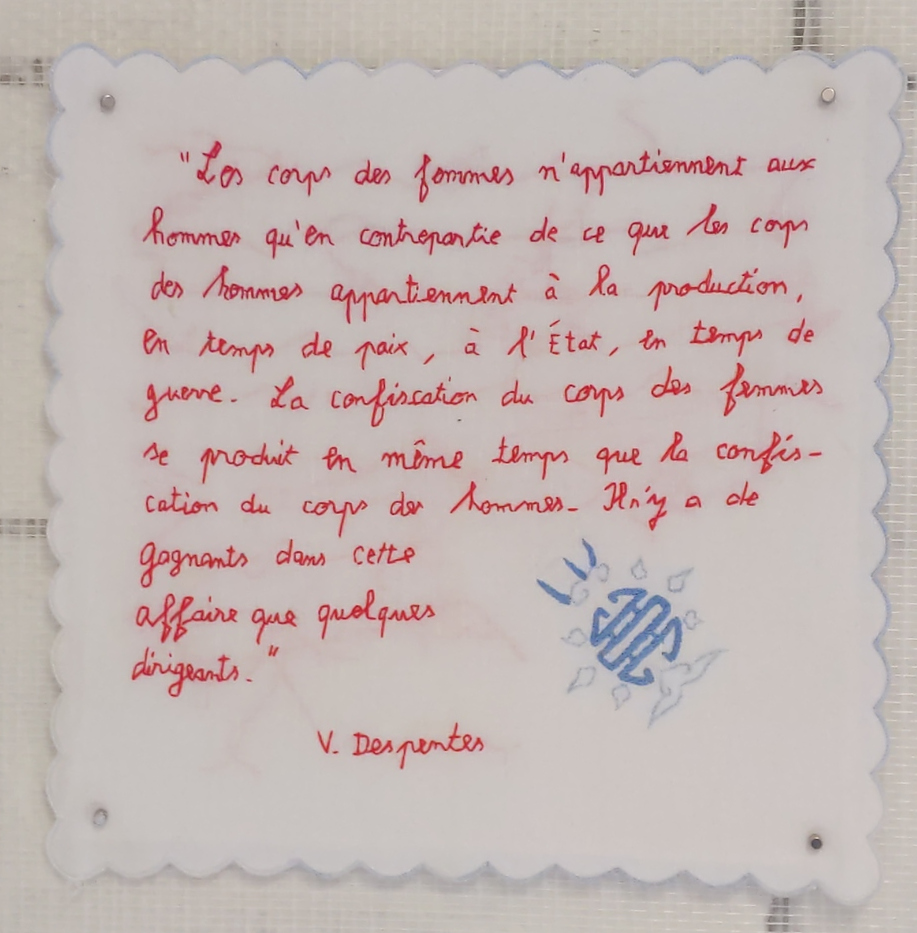 "Les corps des femmes n'appartiennent aux
hommes qu'en contrepartie de ce que les corps
des hommes appartiennent à la production,
en temps de paix, à l'État, en temps de
guerre. La confiscation du corps des femmes
se produit en même temps que la confis-
cation du corps des hommes. Il n'y a de
gagnants dans cette
affaire que quelques
dirigeants."
V. Despentes